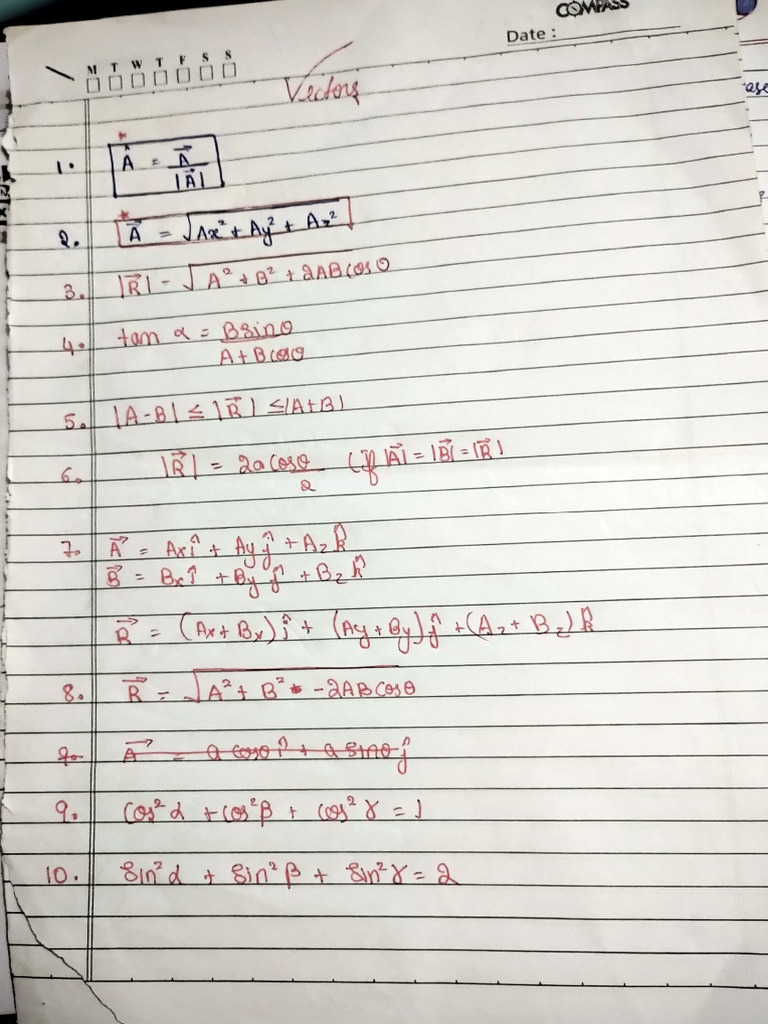 COMPASS
Date :
M T W T F S S
Vectors
1. Â = A⃗ / |A⃗|
2. A⃗ = √Ax² + Ay² + Az²
3. |R⃗| - √A² + B² + 2AB cosθ
4. tan α = B sinθ / A + B cosθ
5. |A-B| ≤ |R⃗| ≤ |A+B|
6. |R⃗| = 2a cosθ/2 (if |A⃗| = |B⃗| = |R⃗|
7. A⃗ = Axî + Ayĵ + Azk̂
B⃗ = Bxî + Byĵ + Bzk̂
R⃗ = (Ax + Bx)ĵ + (Ay + By)ĵ + (Az + Bz)k̂
8. R⃗ = √A² + B² - 2AB cosθ
9. A⃗ = a cosθ î + a sinθ ĵ
9. Cos²α + cos²β + cos²γ = 1
10. Sin²α + Sin²β + Sin²γ = 2